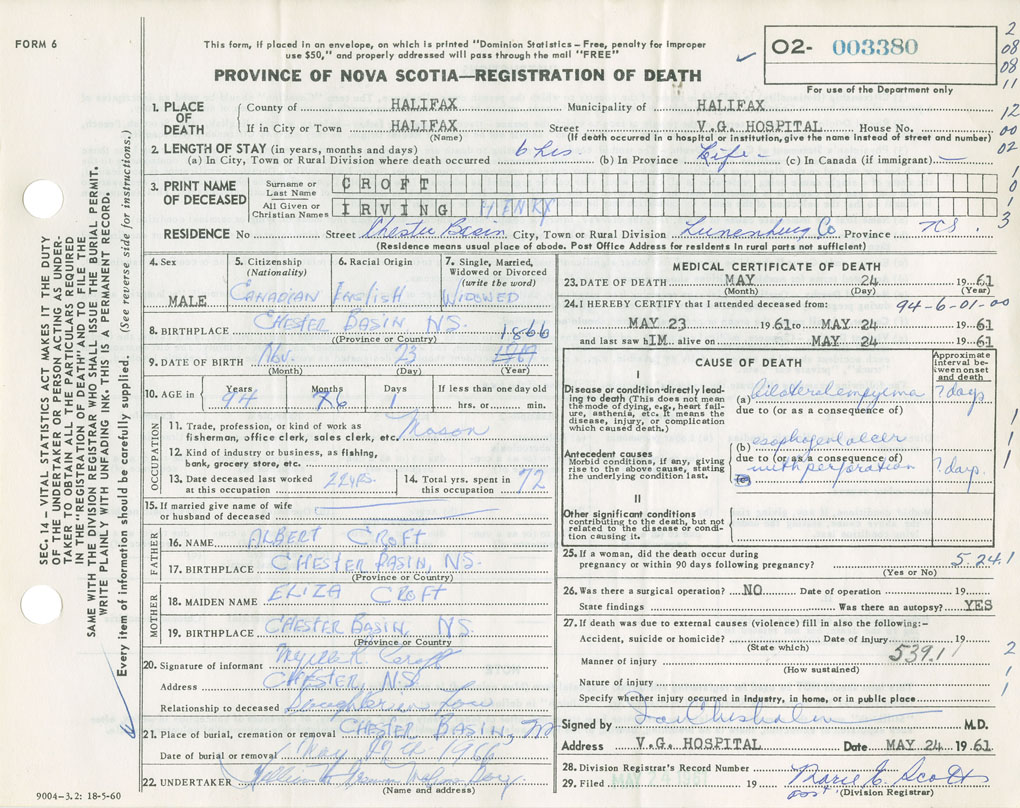 FORM 6
This form, if placed in an envelope, on which is printed "Dominion Statistics – Free, penalty for improper
use $50," and properly addressed will pass through the mail "FREE"
PROVINCE OF NOVA SCOTIA—REGISTRATION OF DEATH
02- 003380
For use of the Department only
2
08
08
11
12
00
02
1. PLACE OF DEATH
County of HALIFAX Municipality of HALIFAX
If in City or Town HALIFAX Street V.G. HOSPITAL House No.
(Name) (If death occurred in a hospital or institution, give its name instead of street and number)
2. LENGTH OF STAY (in years, months and days)
(a) In City, Town or Rural Division where death occurred 6 hrs (b) In Province Life - (c) In Canada (if immigrant) —
3. PRINT NAME OF DECEASED
Surname or Last Name CROFT
All Given or Christian Names IRVING HENRY
RESIDENCE No Street Chester Basin City, Town or Rural Division Lunenburg Co Province NS.
(Residence means usual place of abode. Post Office Address for residents in rural parts not sufficient)
4. Sex MALE
5. Citizenship (Nationality) CANADIAN
6. Racial Origin ENGLISH
7. Single, Married, Widowed or Divorced (write the word) WIDOWED
8. BIRTHPLACE CHESTER BASIN NS.
(Province or Country)
1866
9. DATE OF BIRTH Nov. 23 1967
(Month) (Day) (Year)
10. AGE in Years 94 Months 6 Days 1 If less than one day old hrs. or min.
OCCUPATION
11. Trade, profession, or kind of work as
fisherman, office clerk, sales clerk, etc. Mason
12. Kind of industry or business, as fishing,
bank, grocery store, etc.
13. Date deceased last worked
at this occupation 22 yrs.
14. Total yrs. spent in
this occupation 72
15. If married give name of wife
or husband of deceased
FATHER
16. NAME ALBERT CROFT
17. BIRTHPLACE CHESTER BASIN, NS.
(Province or Country)
MOTHER
18. MAIDEN NAME ELIZA CROFT
19. BIRTHPLACE CHESTER BASIN, NS.
(Province or Country
20. Signature of informant Croft
Address CHESTER, N.S.
Relationship to deceased Daughter in Law
21. Place of burial, cremation or removal CHESTER BASIN, NS
Date of burial or removal May
22. UNDERTAKER
(Name and address)
9004-3.2: 18-5-60
SEC. 14 – VITAL STATISTICS ACT MAKES IT THE DUTY
OF THE UNDERTAKER OR PERSON ACTING AS UNDER-
TAKER TO OBTAIN ALL THE PARTICULARS REQUIRED
IN THE "REGISTRATION OF DEATH" AND TO FILE THE
SAME WITH THE DIVISION REGISTRAR WHO SHALL ISSUE THE BURIAL PERMIT.
WRITE PLAINLY WITH UNFADING INK. THIS IS A PERMANENT RECORD.
Every item of information should be carefully supplied. (See reverse side for instructions.)
MEDICAL CERTIFICATE OF DEATH
23. DATE OF DEATH MAY 24 19 61
(Month) (Day) (Year)
24. I HEREBY CERTIFY that I attended deceased from: 94-6-01-00
MAY 23 1961 to MAY 24 19 61
and last saw hIM alive on MAY 24 19 61
CAUSE OF DEATH
Approximate interval between onset and death
I
Disease or condition directly leading to death (This does not mean the mode of dying, e.g., heart failure, asthenia, etc. It means the disease, injury, or complication which caused death.)
(a) bilateral empyema ? days.
due to (or as a consequence of)
Antecedent causes
Morbid conditions, if any, giving rise to the above cause, stating the underlying condition last.
(b) esophageal ulcer
due to (or as a consequence of)
with perforation ? days.
(c)
II
Other significant conditions
contributing to the death, but not related to the disease or condition causing it.
25. If a woman, did the death occur during
pregnancy or within 90 days following pregnancy? 5.24.1
(Yes or No)
26. Was there a surgical operation? NO Date of operation 19
State findings Was there an autopsy? YES
27. If death was due to external causes (violence) fill in also the following:-
Accident, suicide or homicide? Date of injury 19
(State which) 539.1
Manner of injury
(How sustained)
Nature of injury
Specify whether injury occurred in industry, in home, or in public place
Signed by Chisholm M.D.
Address V.G. HOSPITAL Date MAY 24 1961
28. Division Registrar's Record Number
29. Filed MAY 24 1961 19 Marie C. Scott
(Division Registrar)